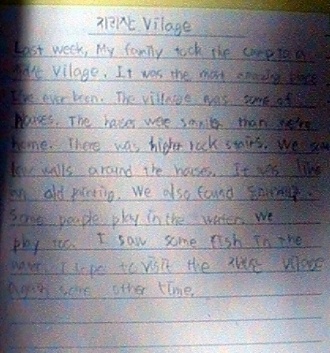 지리산 Vilage
Last week, My family took the camp to a
Vilage. It was the most amazing place
I've ever been. The village was some of
houses. The houses were smaller than
home. There was higher rock stairs. We saw
low walls around the houses. It was like
an old painting. We also found
Some people play in the water. We
play too. I saw some fish in the
water. I hope to visit the 지리산 village
Again some other time.